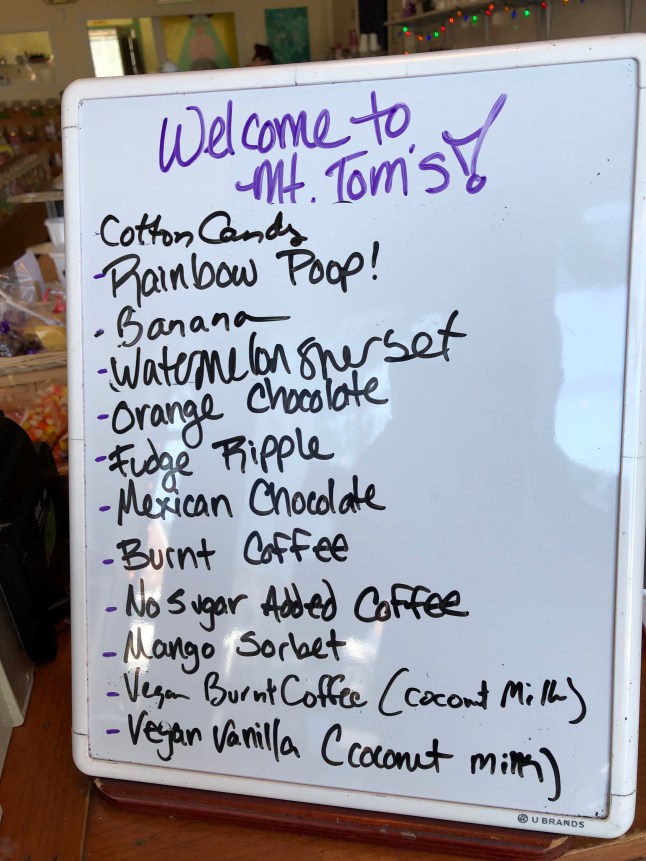 Welcome to
Mt. Tom's!
Cotton Candy
- Rainbow Poop!
- Banana
- Watermelon sherset
- Orange Chocolate
- Fudge Ripple
- Mexican Chocolate
- Burnt Coffee
- No Sugar Added Coffee
- Mango Sorbet
- Vegan Burnt Coffee (coconut Milk)
- Vegan Vanilla (coconut milk)
U BRANDS